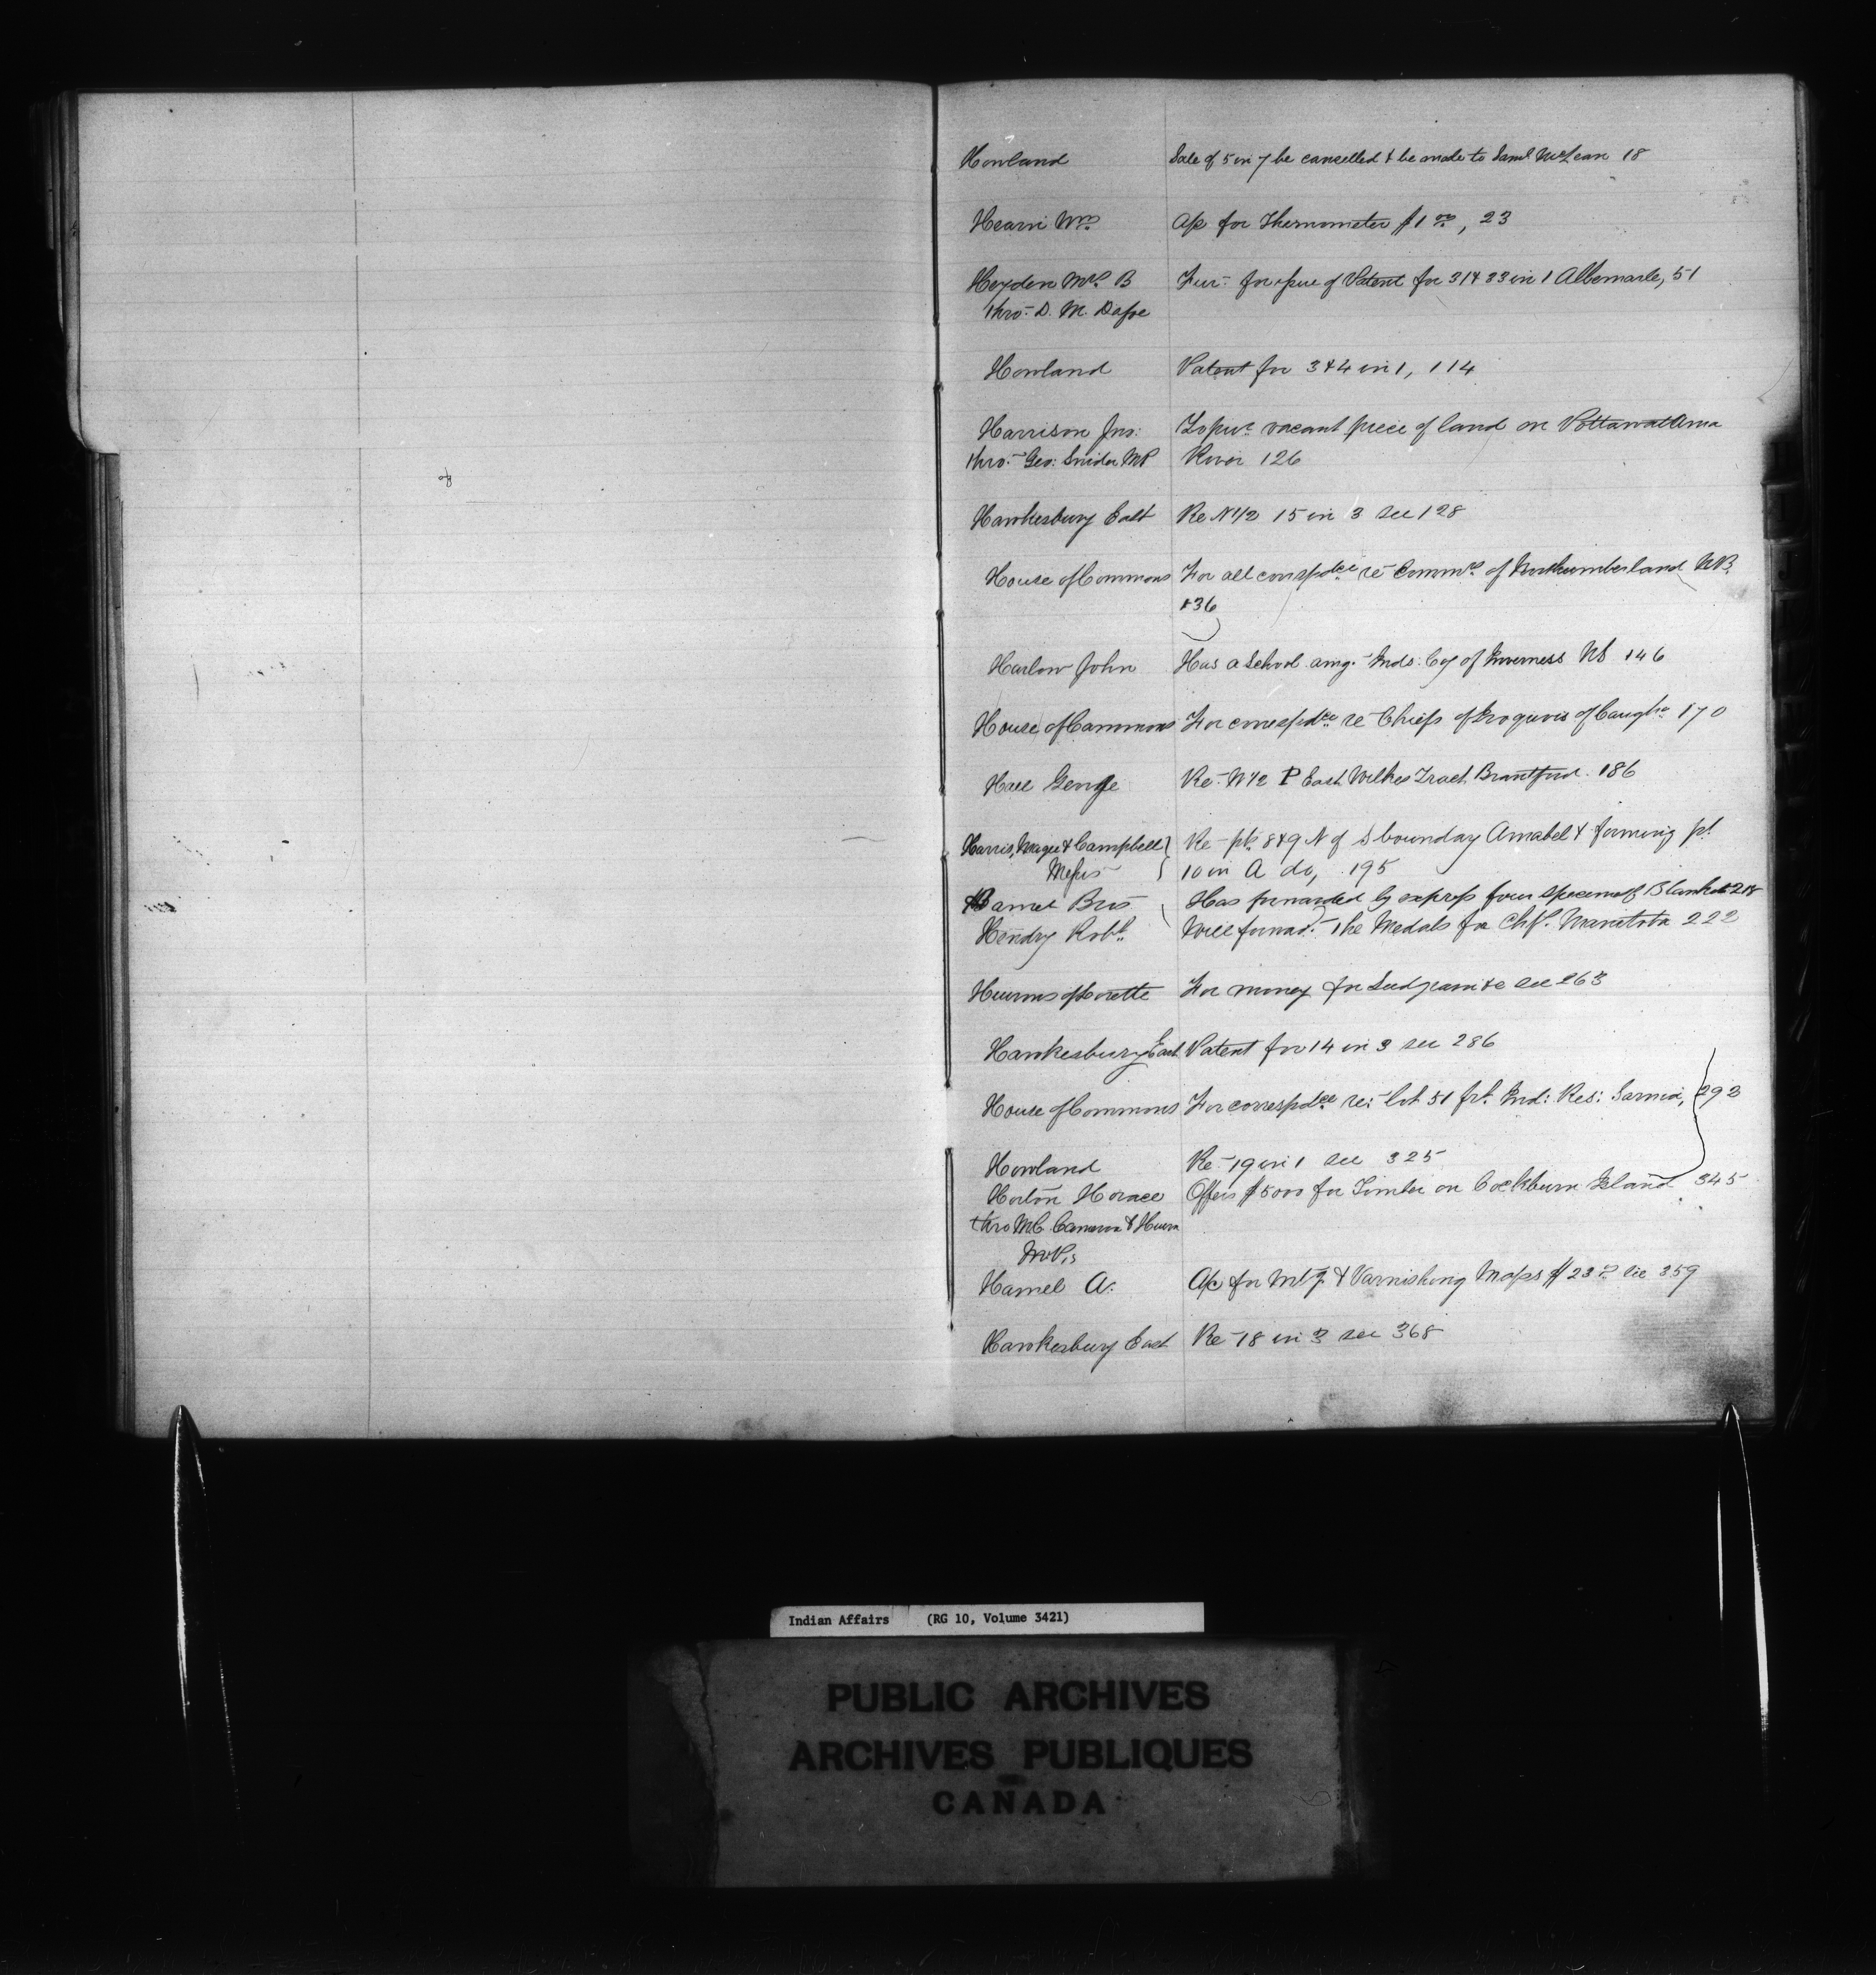 Howland Sale of 5 in 7 be cancelled & be made to Saml McLean 18
Hearn Wm A/c for Thermometer $1 00, 23
Heyden Mrs. B for issue of Patent for 31 & 33 in 1 Albemarle, 51
thro. D. M. Dafoe
Howland Patent for 3 & 4 in 1, 114
Harrison Jno: To pur. vacant piece of land on Pottawatama
thro. Geo: Snider MP River 126
Hawkesbury East Re N 1/2 15 in 3 see 128
House of Commons For all correspdce re Commrs of Northumberland NB.
136
Harlow John Has a School amg. Inds. Cy of Inverness NS 146
House of Commons For correspdce re Chiefs of Iroquois of Caugha 170
Hale George Re N 1/2 P East Wilkes Tract Brantford. 186
Harris, Magee & Campbell Re pts 8 & 9 N of S boundary Amabel & forming pt
Messrs 10 in A do, 195
Hamel Bros Has forwarded by express four Blankets 218
Hendry Robt. Will forwad. the Medals for Chfs. Manitoba 222
Hurons of Lorette For money for Seed grain &c see 263
Hawkesbury East Patent for 14 in 3 see 286
House of Commons For correspdce re: lot 51 frt. Ind: Res: Sarnia, 292
Howland Re 19 in 1 see 325
Horton Horace Offers $5000 for Timber on Cockburn Island 345
thro M.C. Cameron & Huron
M.P.s
Hamel A. A/c for Mtg. & Varnishing Maps $23 see 359
Hawkesbury East Re 18 in 3 see 368
Indian Affairs (RG 10, Volume 3421)
PUBLIC ARCHIVES
ARCHIVES PUBLIQUES
CANADA